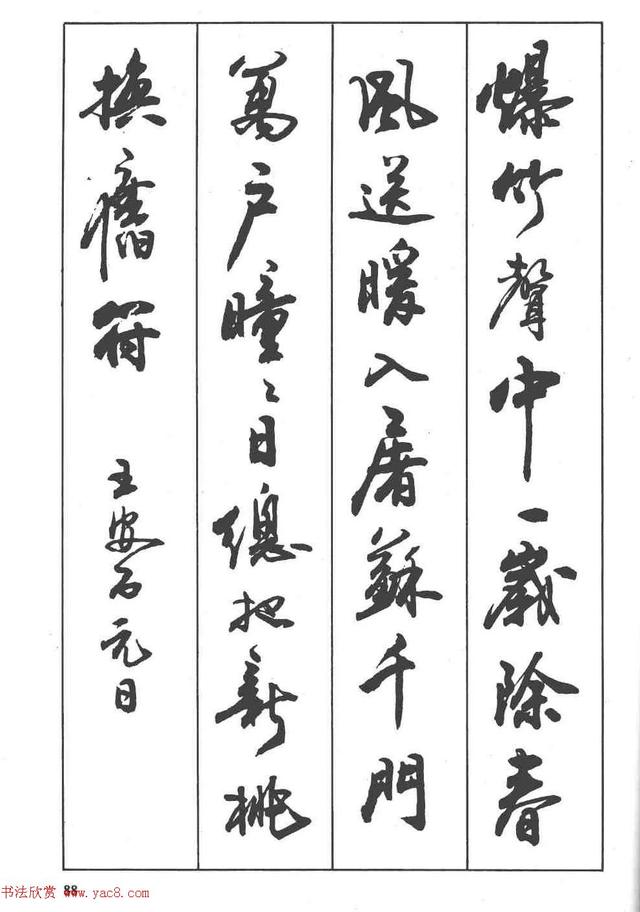 爆竹聲中一歲除春
風送暖入屠蘇千門
萬戶瞳〻日總把新桃
換舊符
王安石元日
88
书法欣赏 www.yac8.com